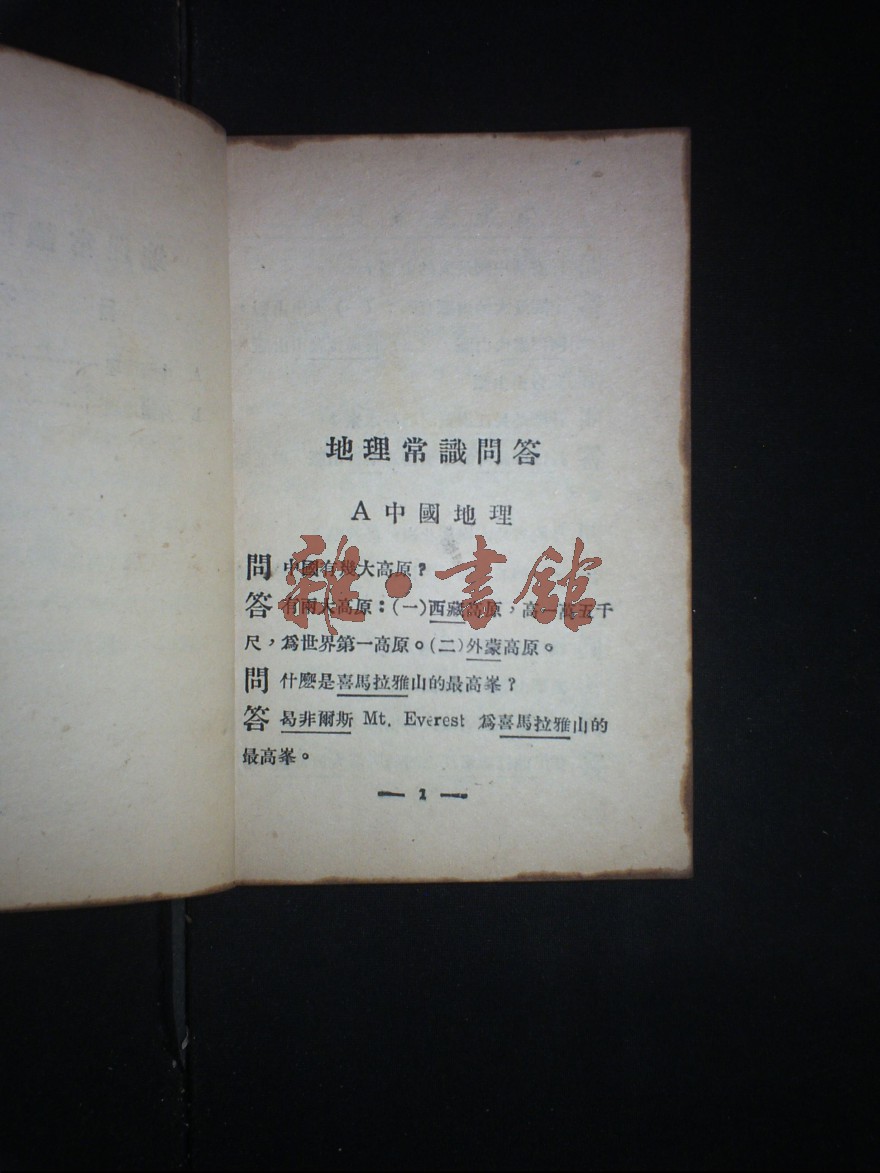 地理常識問答
A中國地理
問 中國有幾大高原？
答 有兩大高原：(一)西藏高原，高一萬五千
尺，爲世界第一高原。(二)外蒙高原。
問 什麼是喜馬拉雅山的最高峯？
答 曷非爾斯 Mt. Everest 爲喜馬拉雅山的
最高峯。
— 1 —
雜·書館